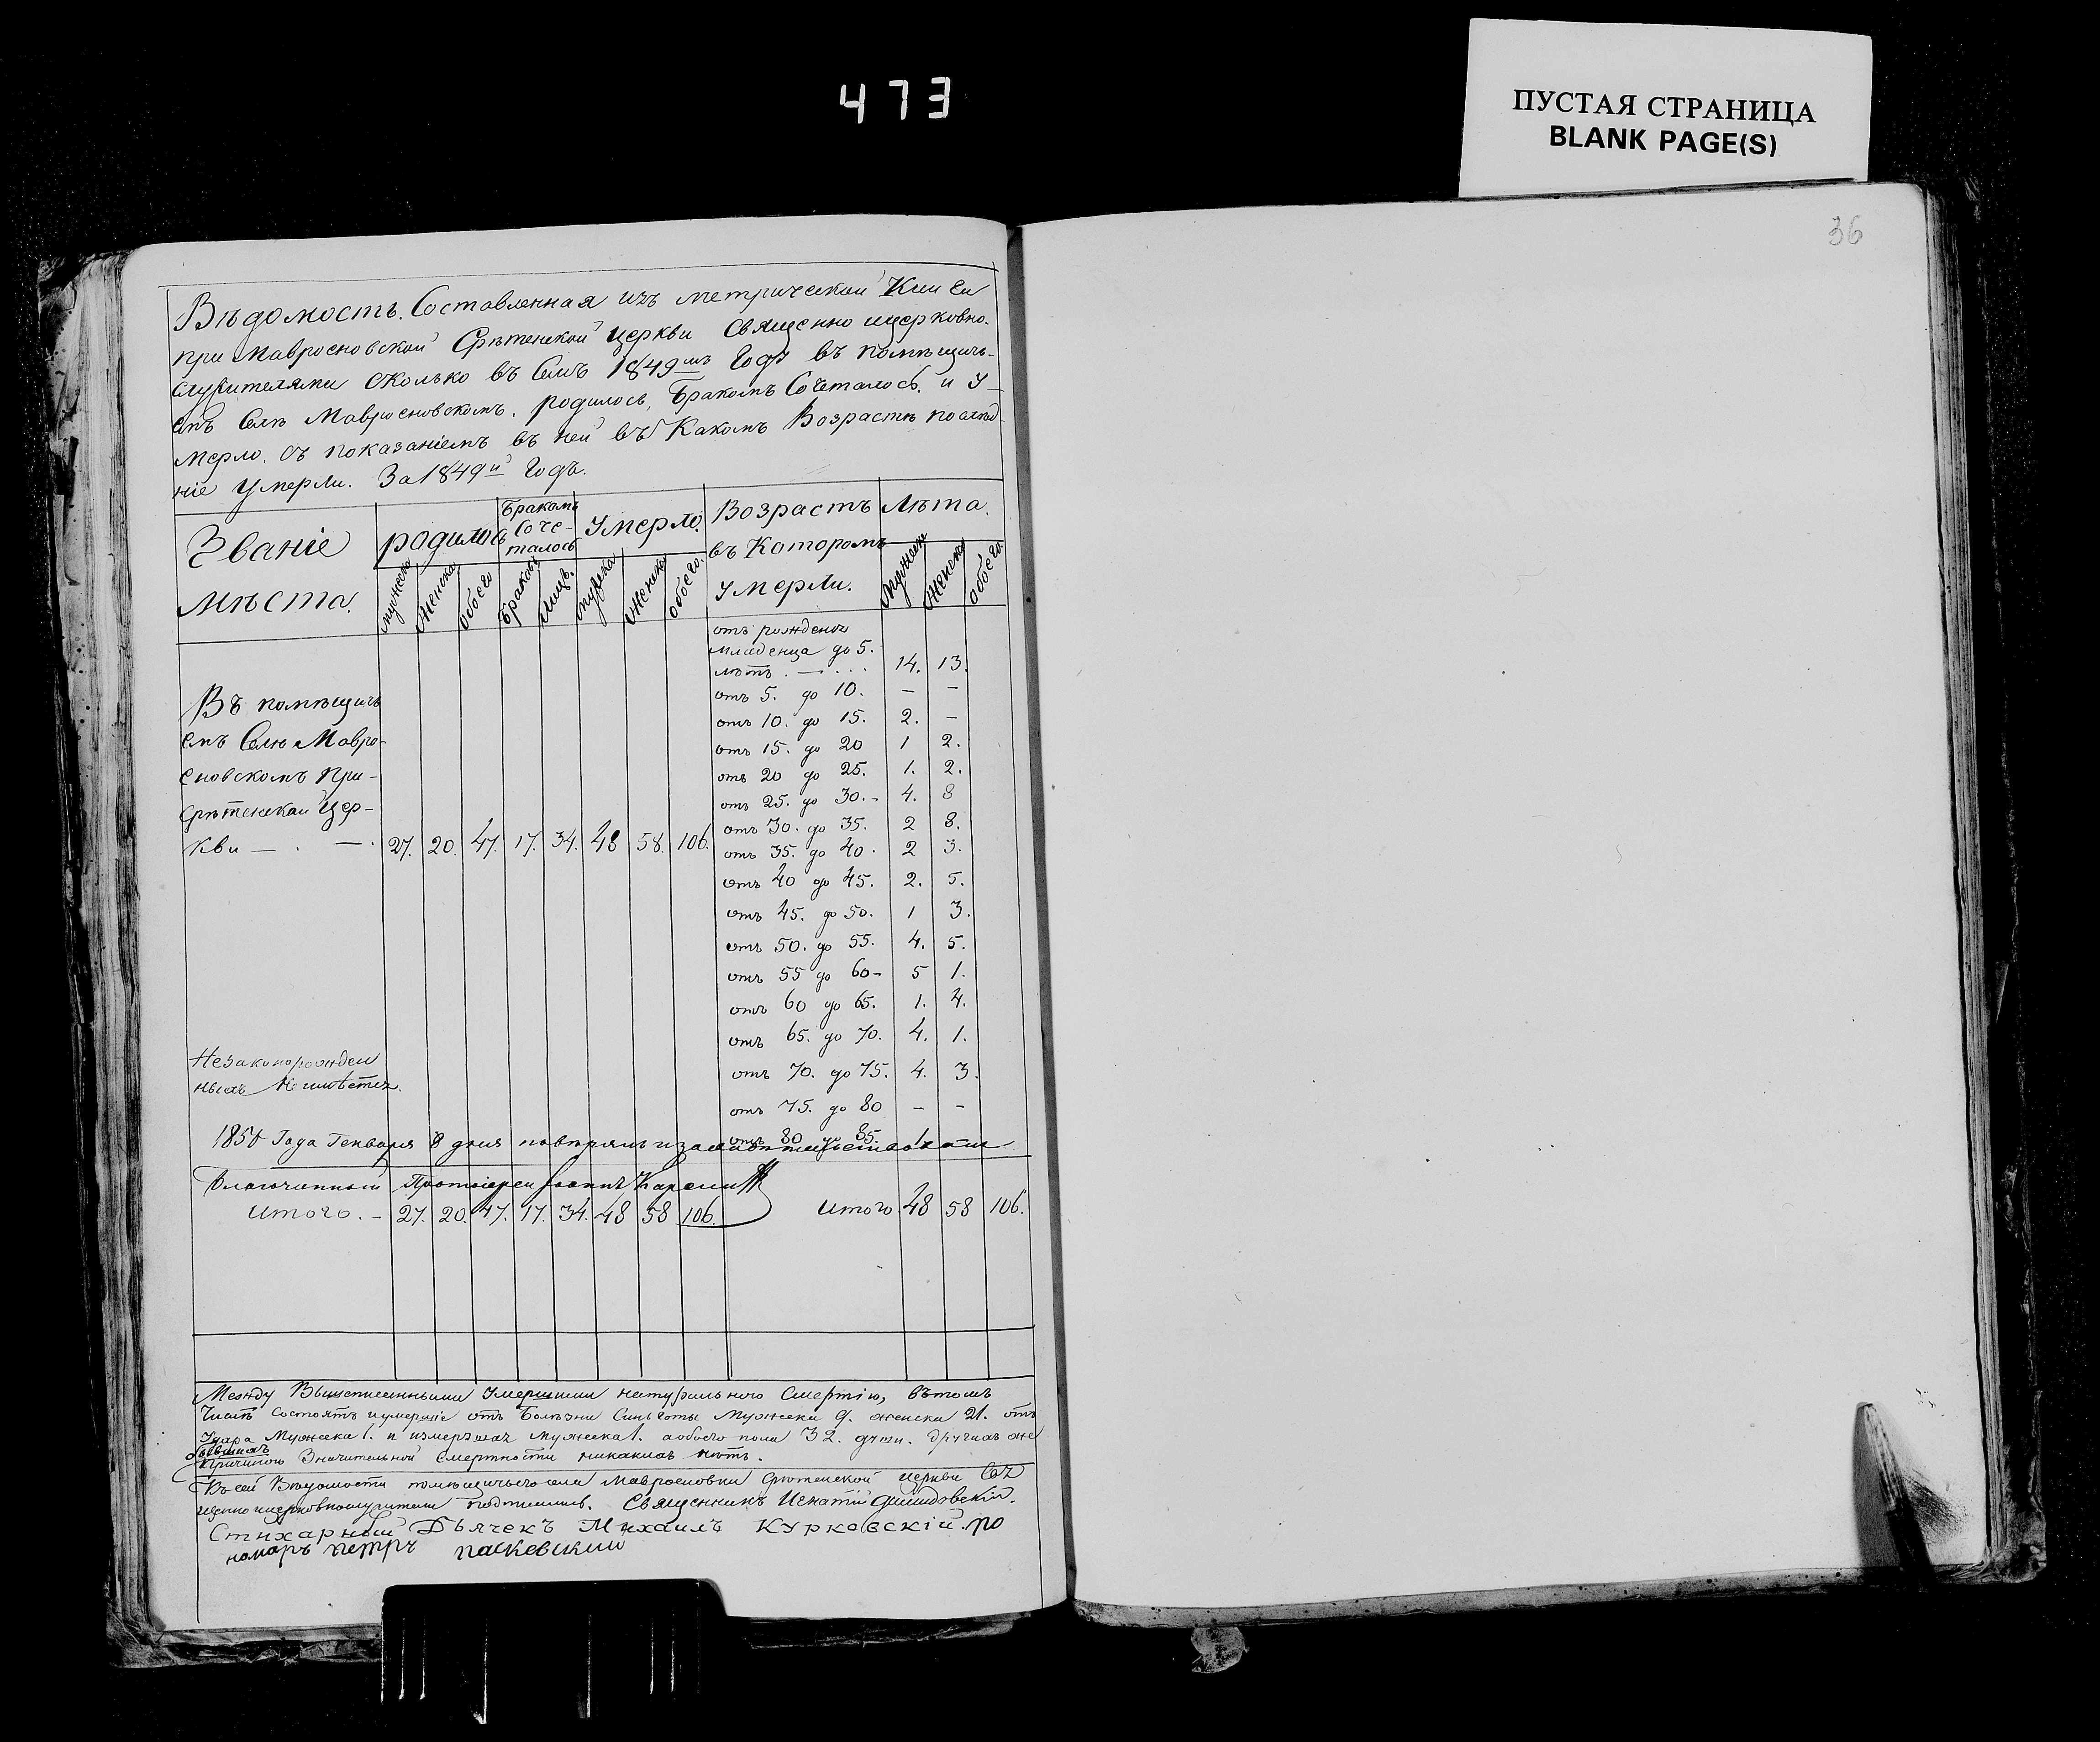 473
ПУСТАЯ СТРАНИЦА
BLANK PAGE(S)
36
Вѣдомость. Составленная изъ метрической Книги
при Мавроеновской Срѣтенской церкви Священно ицерковно-
служителями сколько въ семъ 1849мъ Годѣ въ помѣщичь-
емъ Селѣ Мавроеновскомъ. родилось, Бракомъ Сочеталось. и У-
мерло. съ показаніемъ въ ней въ Какомъ Возрастѣ послѣд-
ніе Умерли. За 1849й Годъ.
Званіе мѣста. родилось Бракомъ Соче-талось Умерло. Возрастъ въ Которомъ умерли. Лѣта.
мужеска женска обоего браковъ лицъ. мужеска женска обоего. мужеска женска обоего.
отъ рожденія
младенца до 5.
лѣтъ. — . . . 14. 13.
отъ 5. до 10. — —
отъ 10. до 15. 2. —
отъ 15. до 20 1 2.
отъ 20 до 25. 1. 2.
отъ 25. до 30. - 4. 8
отъ 30. до 35. 2 8.
отъ 35. до 40. 2 3.
отъ 40 до 45. 2. 5.
отъ 45. до 50. 1 3.
отъ 50. до 55. 4. 5.
отъ 55 до 60- 5 1.
отъ 60 до 65. 1. 4.
отъ 65. до 70. 4. 1.
отъ 70. до 75. 4. 3.
отъ 75. до 80 — —
отъ 80 до 85. 1.
Въ помѣщичь
емъ Селѣ Мавро-
еновскомъ при-
Срѣтенской Цер-
кви — . — . 27. 20. 47. 17. 34. 48 58. 106.
Незаконорожден
ныхъ Неимѣется.
1850 Года Генваря 8 дня повѣрялъ и засвидѣтельствовалъ
Благочинный Протоіерей Іоаннъ
Итого. - 27. 20. 47. 17. 34. 48 58 106. Итого 48 58 106.
Между Вышеписанными Умершими натуральною Смертію, вътомъ
Числѣ состоятъ иумершіе отъ Болѣзни Мужеска 9. женска 21. отъ
Удара Мужеска 1. и Мужеска 1. аобоего пола 32. души. Другихъ же
бывшихъ
Причиною Значительной Смертности никакихъ нѣтъ.
Къ сей Вѣдомости помѣщичьего села Мавроеновки Срѣтенской церкви Свя
щенно ицерковнослужители подписались. Священникъ Игнатій
Стихарный Дьячекъ Михаилъ Курковскій. по
номаръ петръ паскевский